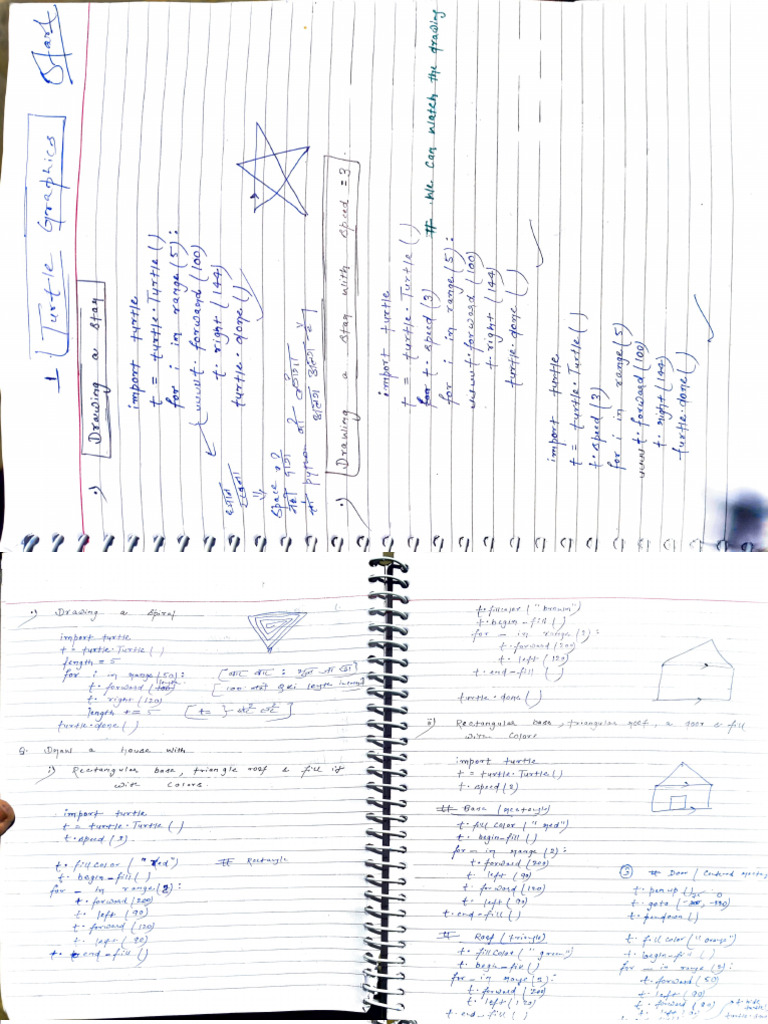 1 Turtle Graphics Start
•) Drawing a star
import turtle
t = turtle.Turtle()
for i in range(5):
t.forward(100)
t.right(144)
turtle.done()
ध्यान
रखना
Space
•) Drawing a star with speed = 3.
import turtle
t = turtle.Turtle()
t.speed(3) # We can watch the drawing
for i in range(5):
t.forward(100)
t.right(144)
turtle.done()
import turtle
t = turtle.Turtle()
t.speed(3)
for i in range(5)
t.forward(100)
t.right(144)
turtle.done()
•) Drawing a Spiral
import turtle
t = turtle.Turtle()
length = 5
for i in range(50):
t.forward(length)
t.right(120)
length += 5
turtle.done()
Q. Draw a house with
i) Rectangular base, triangle roof & fill it
with colors.
import turtle
t = turtle.Turtle()
t.speed(2)
t.fillcolor("red") # Rectangle
t.begin_fill()
for _ in range(2):
t.forward(200)
t.left(90)
t.forward(120)
t.left(90)
t.end_fill()
t.fillcolor("brown")
t.begin_fill()
for _ in range(2):
t.forward(200)
t.left(120)
t.end_fill()
turtle.done()
ii) Rectangular base, triangular roof, a door & fill
with colors
import turtle
t = turtle.Turtle()
t.speed(2)
# Base (rectangle)
t.fillcolor("red")
t.begin_fill()
for _ in range(2):
t.forward(200)
t.left(90)
t.forward(120)
t.left(90)
t.end_fill()
# Roof (triangle)
t.fillcolor("green")
t.begin_fill()
for _ in range(2):
t.forward(200)
t.left(120)
t.end_fill()
# Door (Centered
t.penup()
t.goto(
t.pendown()
t.fillcolor(
t.begin_fill()
for _ in range(2):
t.forward(50)
t.left(90)
t.forward(90)